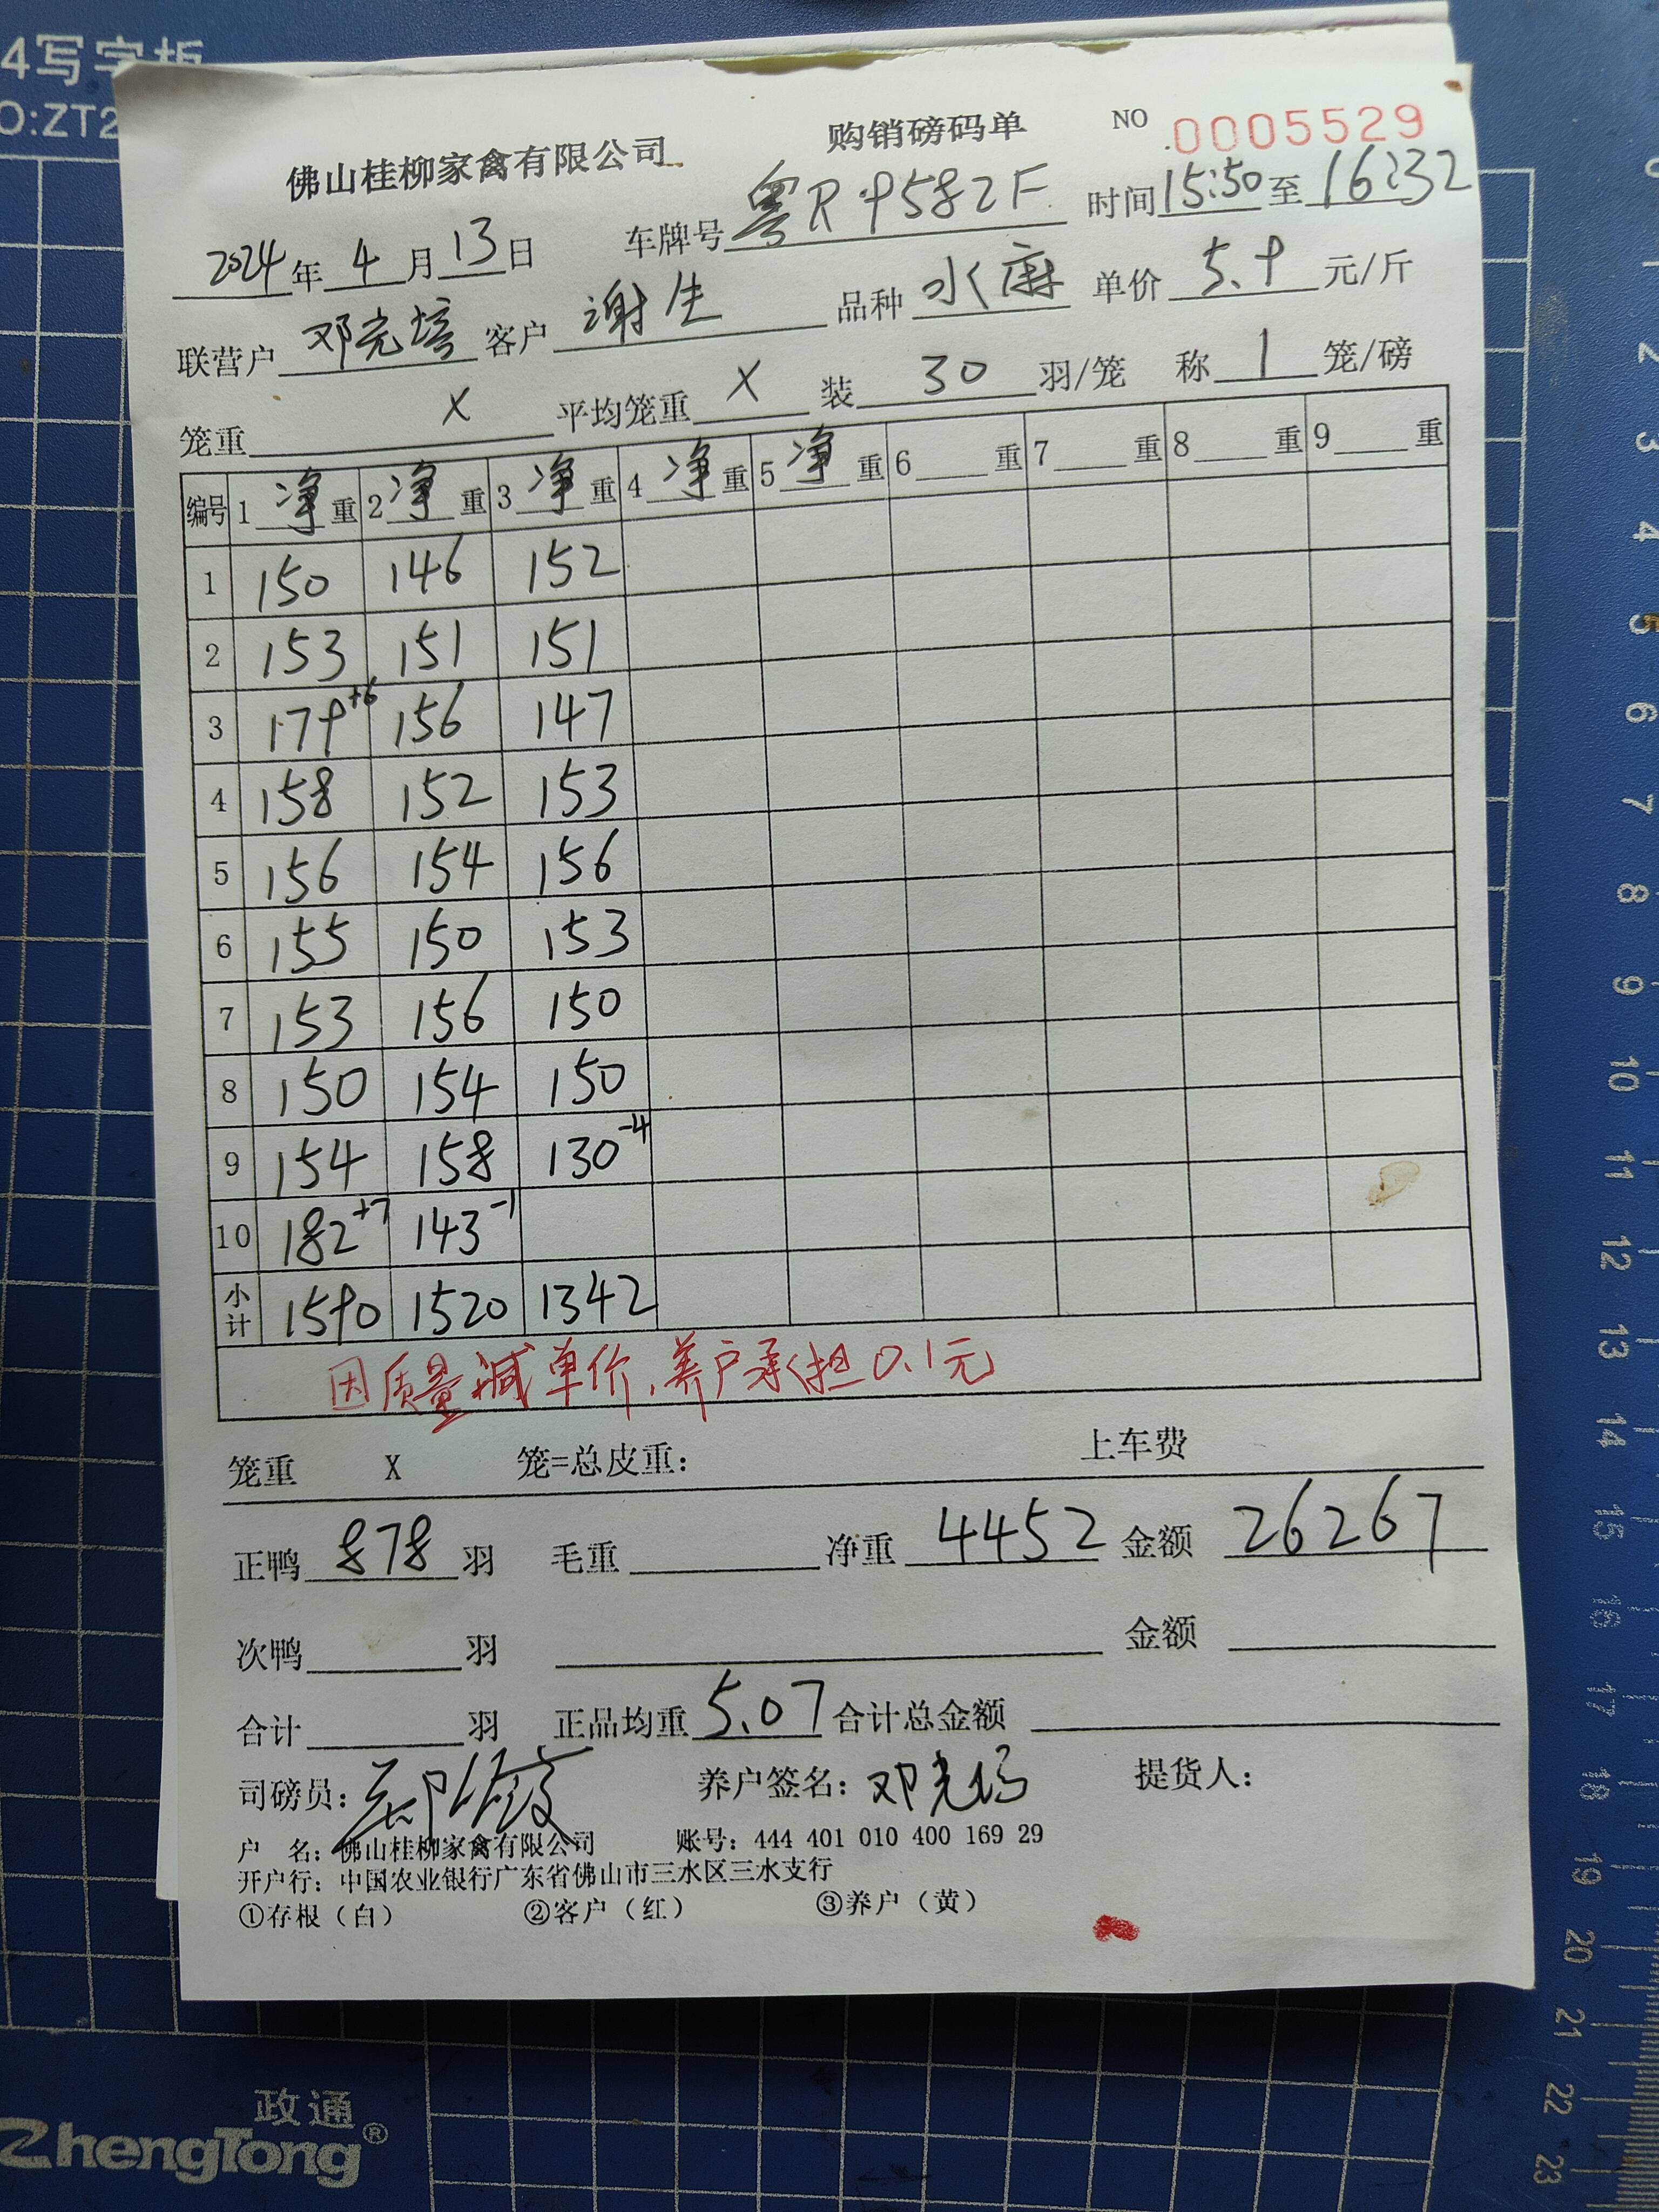 4写字板
O:ZT2
佛山桂柳家禽有限公司 购销磅码单 NO 0005529
2024年4月13日 车牌号粤R·9582F 时间15:50至16:32
联营户邓光培 客户谢生 品种水麻 单价5.9元/斤
笼重 X 平均笼重 X 装30羽/笼 称1笼/磅
编号 1净重 2净重 3净重 4净重 5净重 6重 7重 8重 9重
1 150 146 152
2 153 151 151
3 179+6 156 147
4 158 152 153
5 156 154 156
6 155 150 153
7 153 156 150
8 150 154 150
9 154 158 130-4
10 182+7 143-1
小计 1590 1520 1342
因质量减单价,养户承担0.1元
笼重 X 笼=总皮重: 上车费
正鸭878羽 毛重 净重4452 金额26267
次鸭 羽 金额
合计 羽 正品均重5.07 合计总金额
司磅员: 养户签名:邓光培 提货人:
户 名:佛山桂柳家禽有限公司 账号:444 401 010 400 169 29
开户行:中国农业银行广东省佛山市三水区三水支行
①存根(白) ②客户(红) ③养户(黄)
政通
ZhengTong®
0
1
2
3
4
5
6
7
8
9
10
11
12
13
14
15
16
17
18
19
20
21
22
23